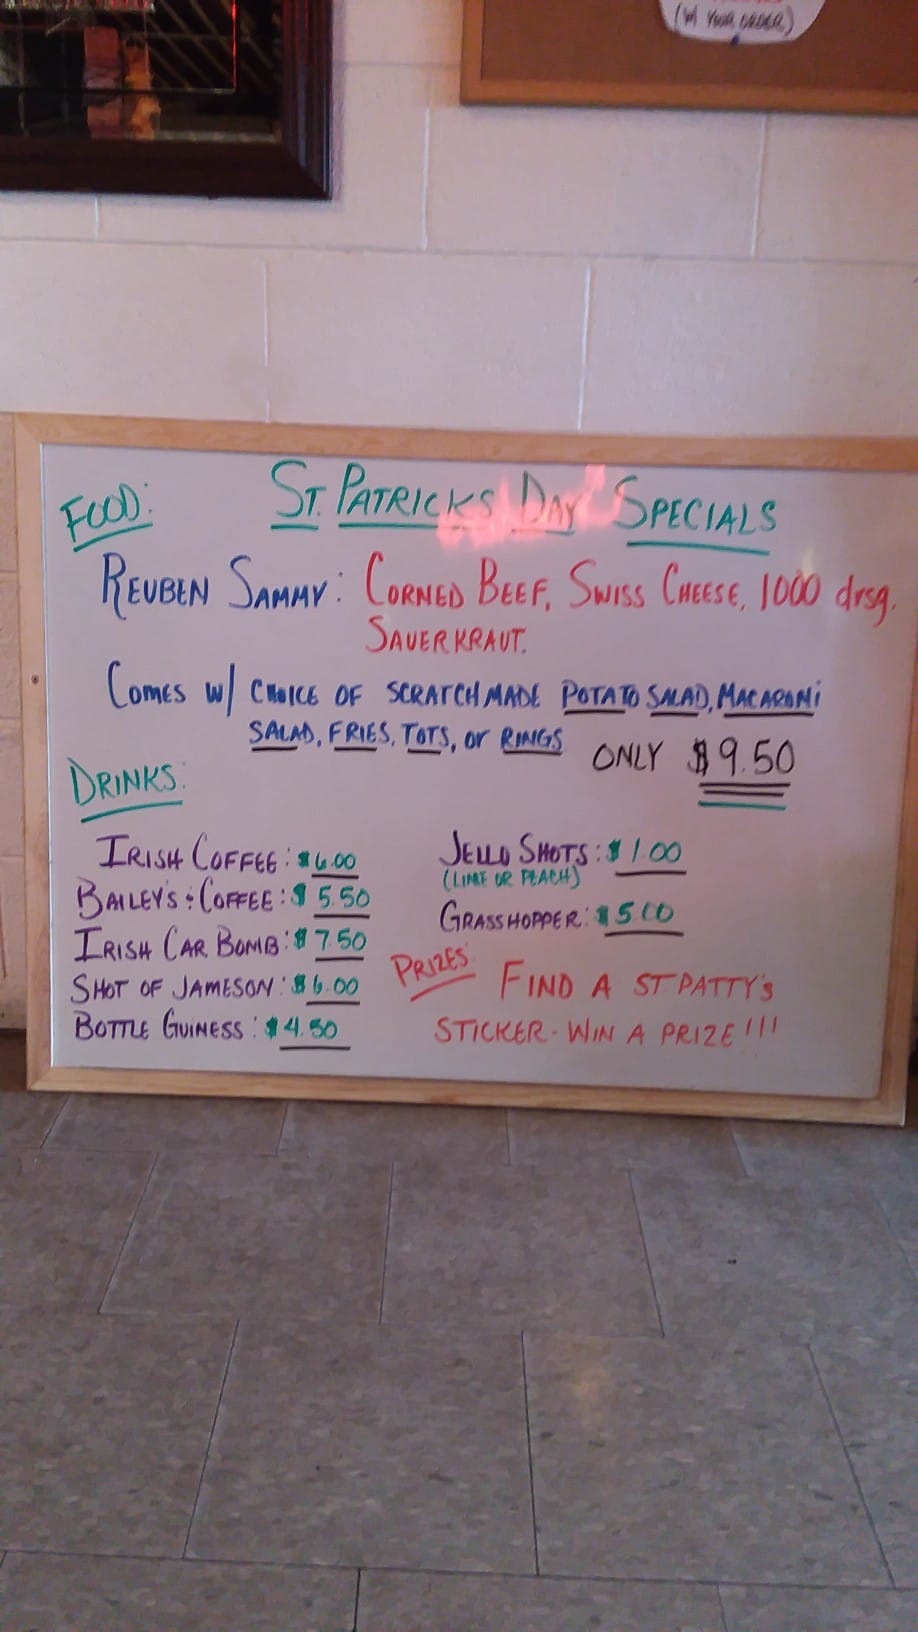 (W/ YOUR ORDER)
ST. PATRICKS DAY SPECIALS
FOOD:
REUBEN SAMMY: CORNED BEEF, SWISS CHEESE, 1000 drsg,
SAUERKRAUT.
COMES W/ CHOICE OF SCRATCH MADE POTATO SALAD, MACARONI
SALAD, FRIES, TOTS, or RINGS
ONLY $9.50
DRINKS:
IRISH COFFEE: $6.00
BAILEY'S & COFFEE: $5.50
IRISH CAR BOMB: $7.50
SHOT OF JAMESON: $6.00
BOTTLE GUINESS: $4.50
JELLO SHOTS: $1.00
(LIME OR PEACH)
GRASSHOPPER: $5.00
PRIZES: FIND A ST PATTY'S
STICKER - WIN A PRIZE!!!